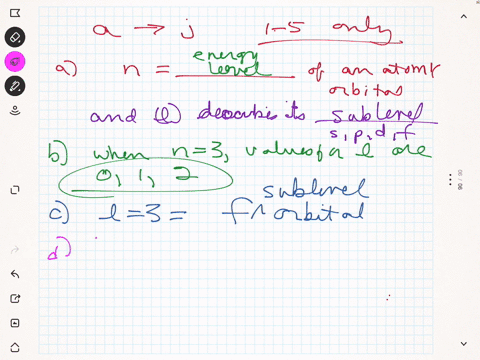 a → j 1-5 only
a) n = energy level of an atom's orbitals
and (l) describes its sublevel
s, p, d, f
b) when n=3, values for l are
0, 1, 2
c) l = 3 = f sublevel orbital
d)